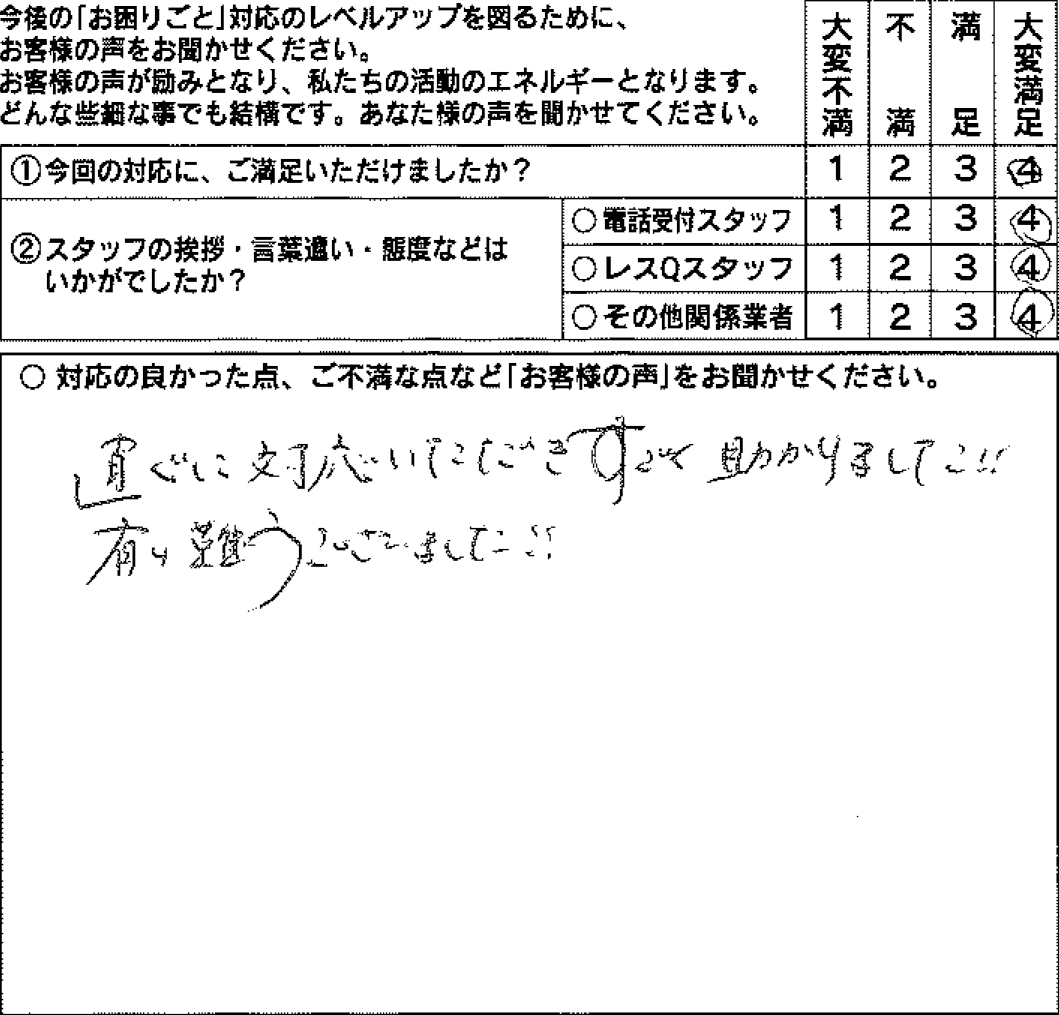 今後の「お困りごと」対応のレベルアップを図るために、
お客様の声をお聞かせください。
お客様の声が励みとなり、私たちの活動のエネルギーとなります。
どんな些細な事でも結構です。あなた様の声を聞かせてください。
大変不満 不満 満足 大変満足
①今回の対応に、ご満足いただけましたか? 1 2 3 4
②スタッフの挨拶・言葉遣い・態度などは
いかがでしたか?
○電話受付スタッフ 1 2 3 4
○レスQスタッフ 1 2 3 4
○その他関係業者 1 2 3 4
○ 対応の良かった点、ご不満な点など「お客様の声」をお聞かせください。
直ぐに対応いただきすごく助かりました!!
有り難うございました!!